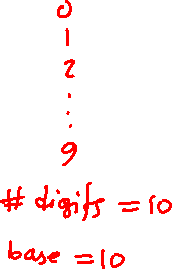 0
1
2
.
.
.
9
# digits = 10
base = 10